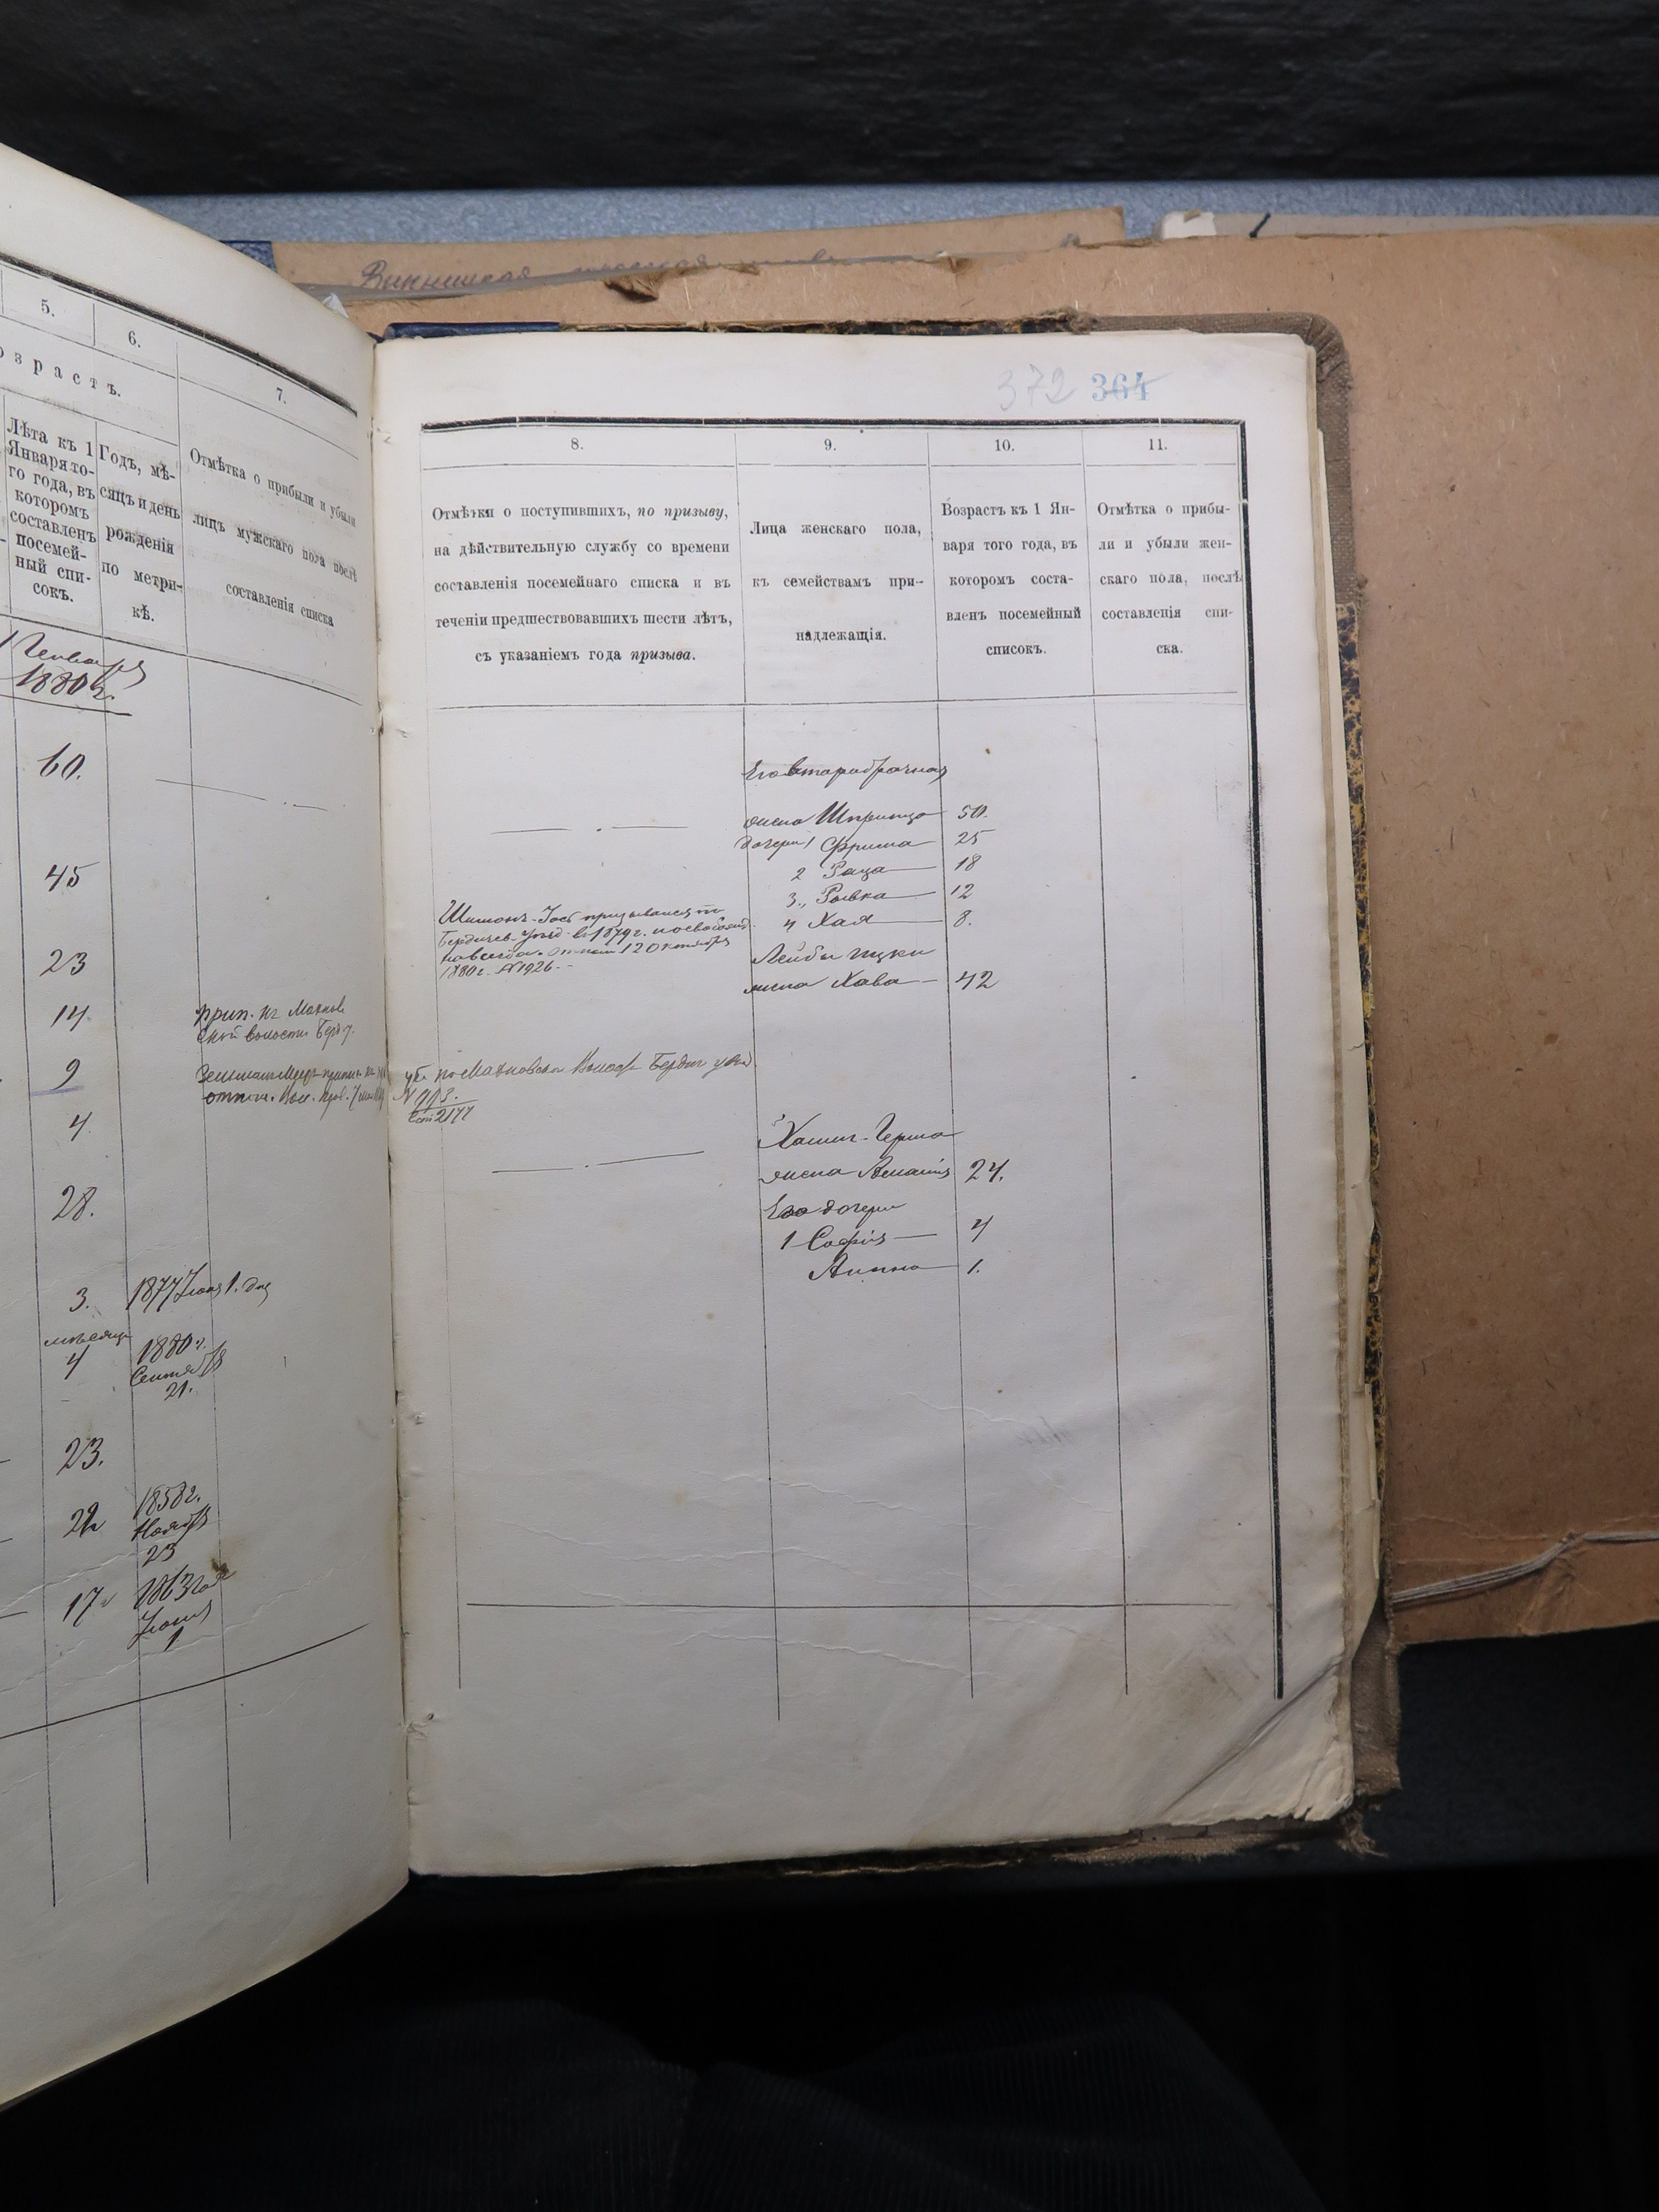 5.
6.
7.
озрастъ.
Лѣта къ 1
Января то-
го года, въ
которомъ
составленъ
посемей-
ный спи-
сокъ.
Годъ, мѣ-
сяцъ и день
рожденія
по метри-
кѣ.
Отмѣтка о прибыли и убыли
лицъ мужскаго пола послѣ
составленія списка
1 Генваря
1880 г.
60.
45
23
14
прип. къ Махнов
ской волости Берд.
9
4
28.
3.
1877 Іюня 1. дня
мѣсяца
4
1880 г.
Сентября
21.
23.
22
1858 г.
Ноября
23
17
1863 года
Іюня
1
372 364
8.
9.
10.
11.
Отмѣтки о поступившихъ, по призыву,
на дѣйствительную службу со времени
составленія посемейнаго списка и въ
теченіи предшествовавшихъ шести лѣтъ,
съ указаніемъ года призыва.
Лица женскаго пола,
къ семействамъ при-
надлежащія.
Возрастъ къ 1 Ян-
варя того года, въ
которомъ соста-
вленъ посемейный
списокъ.
Отмѣтка о прибы-
ли и убыли жен-
скаго пола, послѣ
составленія спи-
ска.
Его вторабрачная
жена Шпринца 50.
дочери 1 Фрима 25
2 Раца 18
3., Рывка 12
4 Хая 8.
Шимонъ-Іось призывался по
Бердичев. уѣзд. въ 1879 г. и освобожд.
навсегда. 12 Октября
1880 г. № 1926.
Лейбы Ицки
жена Хава 42
по Махновской Волости Бердич уѣзд
№ 993.
2177
Хаима-Герша
жена 24.
Его дочери
1 Софія 4
Анна 1.